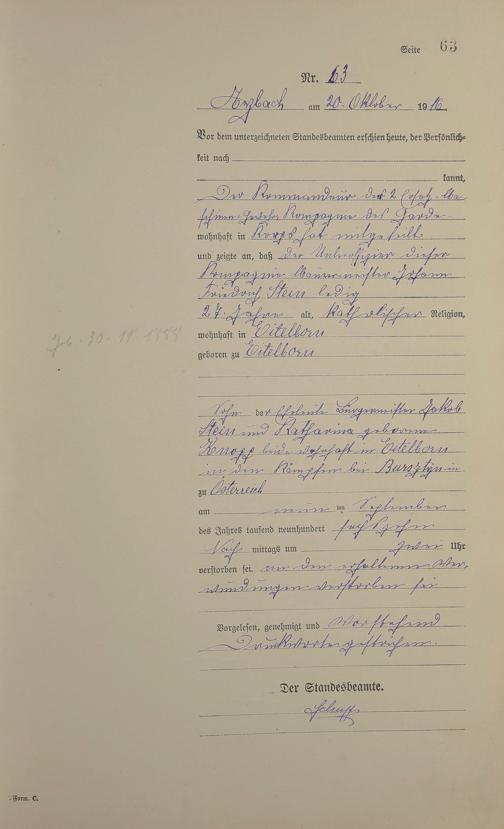 Seite 63
Nr. 63
Arzbach am 20. Oktober 1916
Vor dem unterzeichneten Standesbeamten erschien heute, der Persönlich-
keit nach
kannt,
Der Kommandeur der 2 Ersatz-Ma-
schinen-Gewehr Kompagnie des Garde-
wohnhaft in Korps hat mitgeteilt
und zeigte an, daß der Unteroffizier dieser
Kompagnie Johann
Friedrich Stein ledig
27 Jahre alt, katholischer Religion,
wohnhaft in Eitelborn
geboren zu Eitelborn
Sohn der Eheleute Bürgermeister Jakob
Stein und Katharina geborene
Knopp beide wohnhaft in Eitelborn
in den Kämpfen bei Bursztyn in
zu Österreich
am neun September
des Jahres tausend neunhundert sechszehn
Nach mittags um zwei Uhr
verstorben sei. an den erhaltenen Ver-
wundungen verstorben sei
Vorgelesen, genehmigt und Vorstehend
Druckworte gestrichen.
Der Standesbeamte.
Form. C.